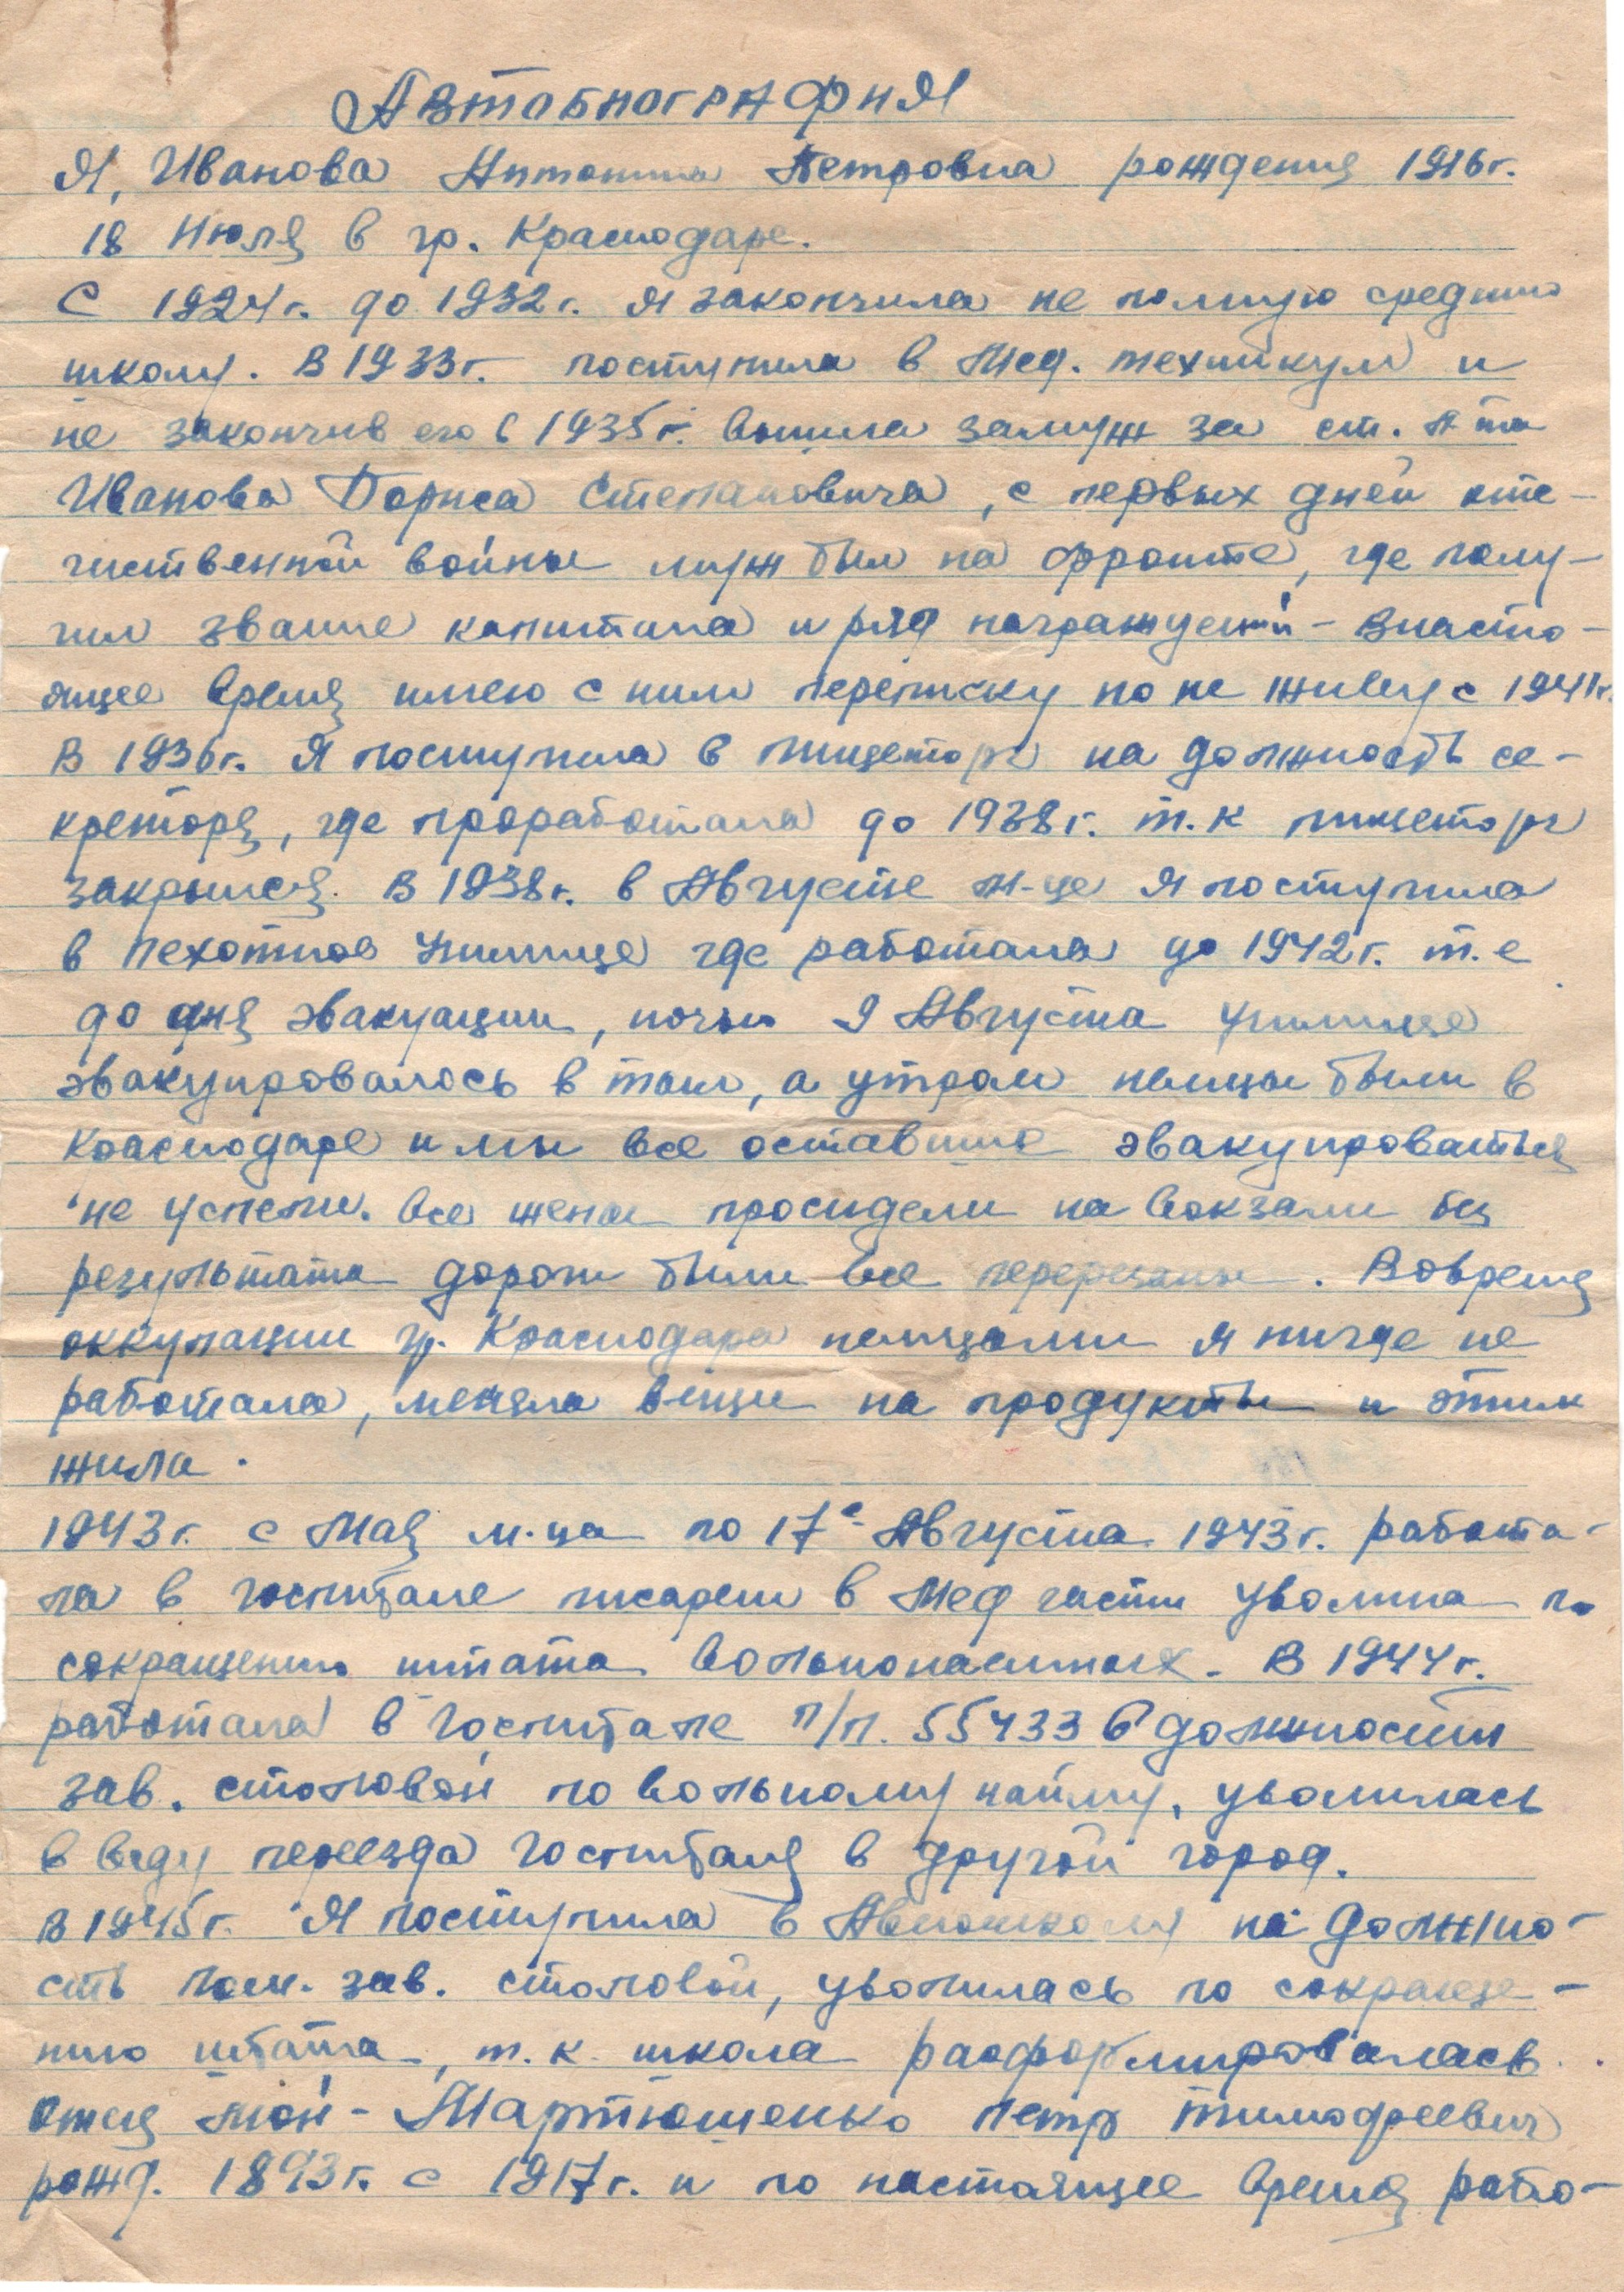 Автобиография
Я, Иванова Антонина Петровна рождения 1916г.
18 Июля в гр. Краснодаре.
С 1924г. до 1932г. Я закончила не полную среднию
школу. В 1933г. поступила в Мед. техникум и
не закончив его в 1935г. вышла замуж за ст. л-та
Иванова Бориса Степановича, с первых дней оте-
чиственной войны муж был на фронте, где полу-
чил звание капитана и ряд награждений - Внасто-
ящее время имею с ним переписку но не живу с 1941г.
В 1936г. Я поступила в пищеторг на должность се-
креторя, где проработала до 1938г. т.к пищеторг
закрылся. В 1938г. в Августе м-це Я поступила
в пехотное Училище где работала до 1942г. т.е
до дня эвакуации, ночью 9 Августа училище
эвакуировалось в тыл, а утром немцы были в
Краснодаре и мы все оставшие эвакуироваться
не успели. Все жены просидели на вокзали без
результата дороги были все перерезаны. Вовремя
оккупации гр. Краснодара немцами я нигде не
работала, меняла вещи на продукты и этим
жила.
1943г. с Мая м-ца по 17е Августа 1943г. работа-
ла в госпитале писарем в Мед части уволина по
сокращению штата вольнонаемных. В 1944г.
работала в Госпитале п/п. 55433 в должности
зав. столовой по вольному найму, уволилась
в виду переезда Госпиталя в другой город.
В 1945г. Я поступила в Авиошколу на должно-
сть пом. зав. столовой, уволилась по сокраще-
нию штата, т.к. школа расформировалась.
Отец мой - Мартюшенко Петр Тимофеевич
рожд. 1893г. с 1917г. и по настоящее время рабо-